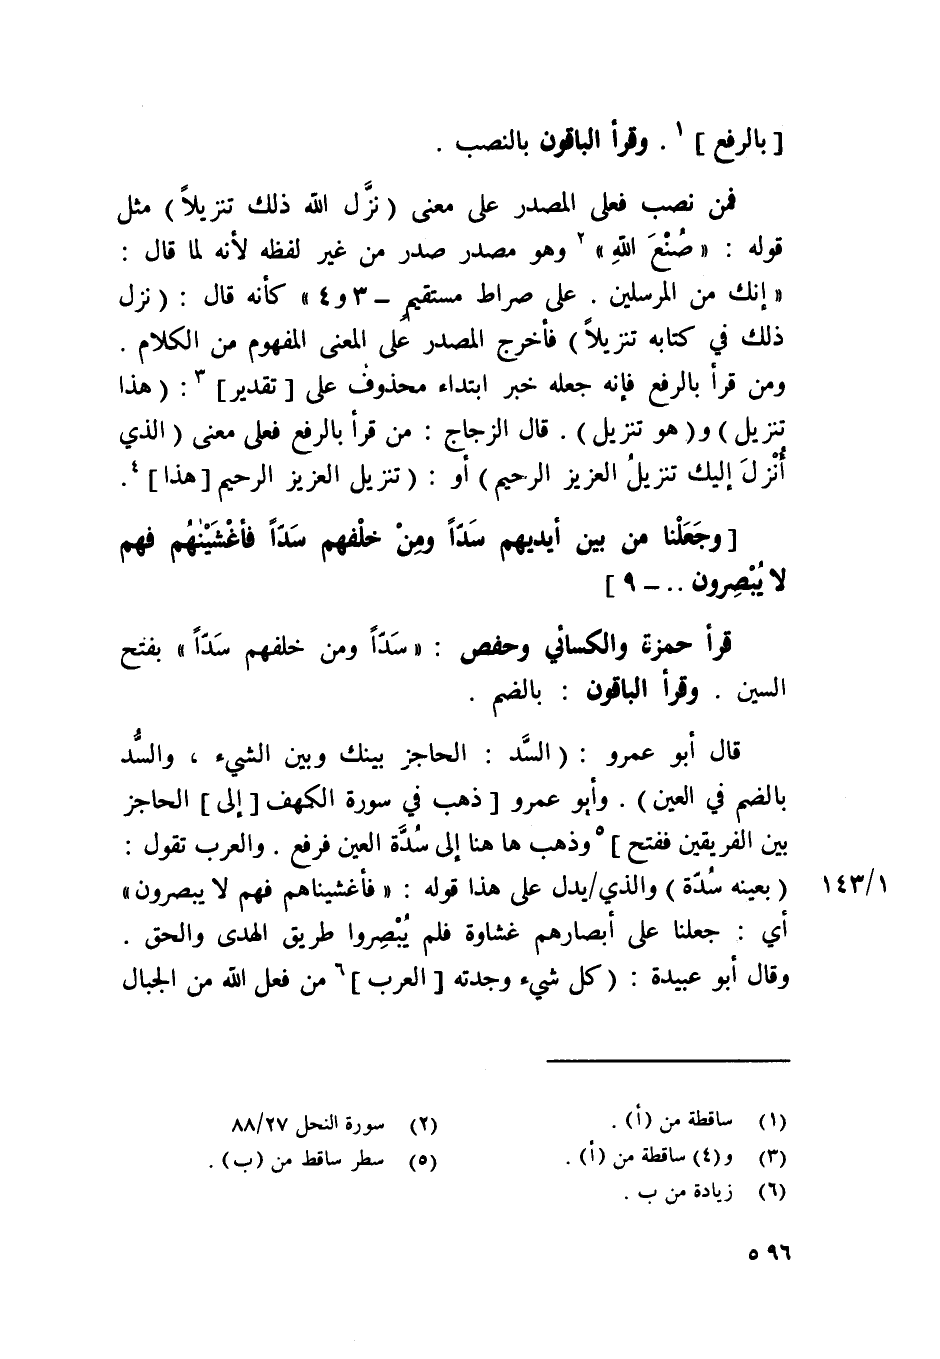 [ بالرفع ] ١ . وقرأ الباقون بالنصب .
فمن نصب فعلى المصدر على معنى ( نزَّل الله ذلك تنزيلاً ) مثل
قوله : « صُنْعَ اللهِ » ٢ وهو مصدر صدر من غير لفظه لأنه لما قال :
« إنك من المرسلين . على صراط مستقيم – ٣ و ٤ » كأنه قال : ( نزل
ذلك في كتابه تنزيلاً ) فأخرج المصدر على المعنى المفهوم من الكلام .
ومن قرأ بالرفع فإنه جعله خبر ابتداء محذوف على [ تقدير ] ٣ : ( هذا
تنزيل ) و( هو تنزيل ) . قال الزجاج : من قرأ بالرفع فعلى معنى ( الذي
أُنْزِلَ إليك تنزيلُ العزيز الرحيم ) أو : ( تنزيل العزيز الرحيم [ هذا ] ٤ .
[ وجَعَلْنا من بين أيديهم سَدّاً ومِنْ خلْفهم سَدّاً فأغْشَيْنٰهُم فهم
لا يُبْصِرون .. – ٩ ]
قرأ حمزة والكسائي وحفص : « سَدّاً ومن خلفهم سَدّاً » بفتح
السين . وقرأ الباقون : بالضم .
قال أبو عمرو : ( السَّد : الحاجز بينك وبين الشيء ، والسُّد
بالضم في العين ) . وأبو عمرو [ ذهب في سورة الكهف [ إلى ] الحاجز
بين الفريقين ففتح ] ٥ وذهب ها هنا إلى سُدَّة العين فرفع . والعرب تقول :
( بعينه سُدّة ) والذي/يدل على هذا قوله : « فأغشيناهم فهم لا يبصرون » ١٤٣/١
أي : جعلنا على أبصارهم غشاوة فلم يُبْصِروا طريق الهدى والحق .
وقال أبو عبيدة : ( كل شيء وجدته [ العرب ] ٦ من فعل الله من الجبال
(١) ساقطة من (أ) . (٢) سورة النحل ٨٨/٢٧
(٣) و(٤) ساقطة من (أ) . (٥) سطر ساقط من (ب) .
(٦) زيادة من ب .
٥٩٦